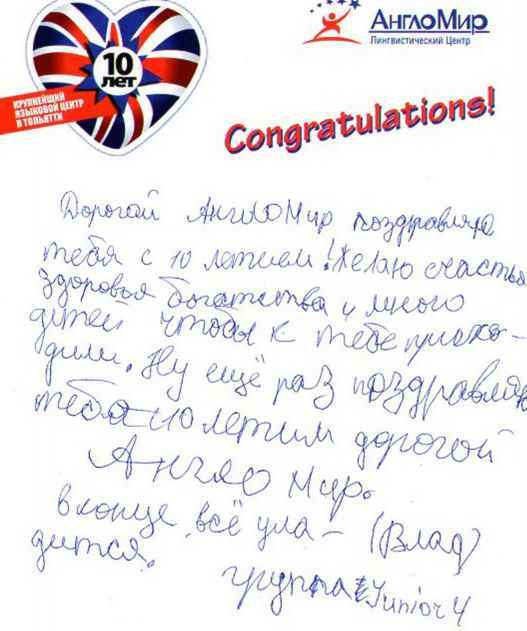 10
лет
КРУПНЕЙШИЙ
ЯЗЫКОВОЙ ЦЕНТР
В ТОЛЬЯТТИ
АнглоМир
Лингвистический Центр
Congratulations!
Дорогой АнглоМир поздравляю
тебя с 10 летием! Желаю счастья
здоровья богатства и много
дитей чтобы к тебе прихо-
дили. Ну ещё раз поздравляю
тебя 10 летим дорогой
Англо Мир.
в конце всё ула- (Влад)
дится.
группа Junior 4